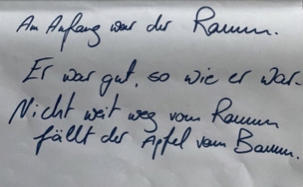 Am Anfang war der Raum.
Er war gut, so wie er war.
Nicht weit weg vom Raum
fällt der Apfel vom Baum.